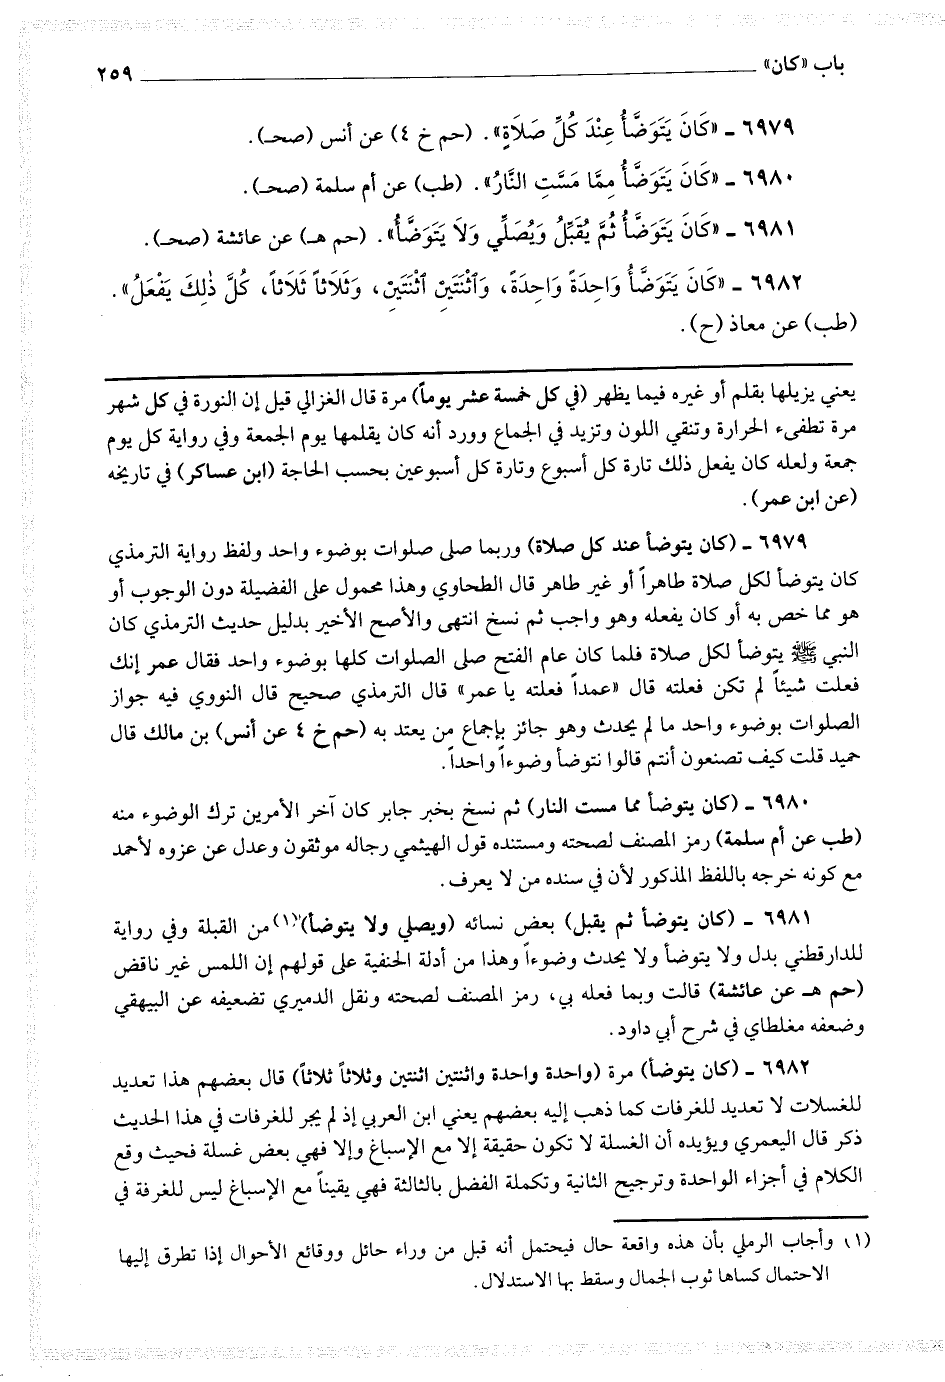 باب «كان» ٢٥٩
٦٩٧٩ ـ «كَانَ يَتَوَضَّأُ عِنْدَ كُلِّ صَلَاةٍ». (حم خ ٤) عن أنس (صحـ).
٦٩٨٠ ـ «كَانَ يَتَوَضَّأُ مِمَّا مَسَّتِ النَّارُ». (طب) عن أم سلمة (صحـ).
٦٩٨١ ـ «كَانَ يَتَوَضَّأُ ثُمَّ يُقَبِّلُ وَيُصَلِّي وَلاَ يَتَوَضَّأُ». (حم هـ) عن عائشة (صحـ).
٦٩٨٢ ـ «كَانَ يَتَوَضَّأُ وَاحِدَةً وَاحِدَةً، وَٱثْنَتَيْنِ ٱثْنَتَيْنِ، وَثَلَاثاً ثَلَاثاً، كُلَّ ذٰلِكَ يَفْعَلُ».
(طب) عن معاذ (ح).
يعني يزيلها بقلم أو غيره فيما يظهر (في كل خمسة عشر يوماً) مرة قال الغزالي قيل إن النورة في كل شهر
مرة تطفىء الحرارة وتنقي اللون وتزيد في الجماع وورد أنه كان يقلمها يوم الجمعة وفي رواية كل يوم
جمعة ولعله كان يفعل ذلك تارة كل أسبوع وتارة كل أسبوعين بحسب الحاجة (ابن عساكر) في تاريخه
(عن ابن عمر).
٦٩٧٩ ـ (كان يتوضأ عند كل صلاة) وربما صلى صلوات بوضوء واحد ولفظ رواية الترمذي
كان يتوضأ لكل صلاة طاهراً أو غير طاهر قال الطحاوي وهذا محمول على الفضيلة دون الوجوب أو
هو مما خص به أو كان يفعله وهو واجب ثم نسخ انتهى والأصح الأخير بدليل حديث الترمذي كان
النبي ﷺ يتوضأ لكل صلاة فلما كان عام الفتح صلى الصلوات كلها بوضوء واحد فقال عمر إنك
فعلت شيئاً لم تكن فعلته قال «عمداً فعلته يا عمر» قال الترمذي صحيح قال النووي فيه جواز
الصلوات بوضوء واحد ما لم يحدث وهو جائز بإجماع من يعتد به (حم خ ٤ عن أنس) بن مالك قال
حميد قلت كيف تصنعون أنتم قالوا نتوضأ وضوءاً واحداً.
٦٩٨٠ ـ (كان يتوضأ مما مست النار) ثم نسخ بخبر جابر كان آخر الأمرين ترك الوضوء منه
(طب عن أم سلمة) رمز المصنف لصحته ومستنده قول الهيثمي رجاله موثقون وعدل عن عزوه لأحمد
مع كونه خرجه باللفظ المذكور لأن في سنده من لا يعرف.
٦٩٨١ ـ (كان يتوضأ ثم يقبل) بعض نسائه (ويصلي ولا يتوضأ)(١) من القبلة وفي رواية
للدارقطني بدل ولا يتوضأ ولا يحدث وضوءاً وهذا من أدلة الحنفية على قولهم إن اللمس غير ناقض
(حم هـ عن عائشة) قالت وبما فعله بي، رمز المصنف لصحته ونقل الدميري تضعيفه عن البيهقي
وضعفه مغلطاي في شرح أبي داود.
٦٩٨٢ ـ (كان يتوضأ) مرة (واحدة واحدة واثنتين اثنتين وثلاثاً ثلاثاً) قال بعضهم هذا تعديد
للغسلات لا تعديد للغرفات كما ذهب إليه بعضهم يعني ابن العربي إذ لم يجر للغرفات في هذا الحديث
ذكر قال اليعمري ويؤيده أن الغسلة لا تكون حقيقة إلا مع الإسباغ وإلا فهي بعض غسلة فحيث وقع
الكلام في أجزاء الواحدة وترجيح الثانية وتكملة الفضل بالثالثة فهي يقيناً مع الإسباغ ليس للغرفة في
(١) وأجاب الرملي بأن هذه واقعة حال فيحتمل أنه قبل من وراء حائل ووقائع الأحوال إذا تطرق إليها
الاحتمال كساها ثوب الجمال وسقط بها الاستدلال.